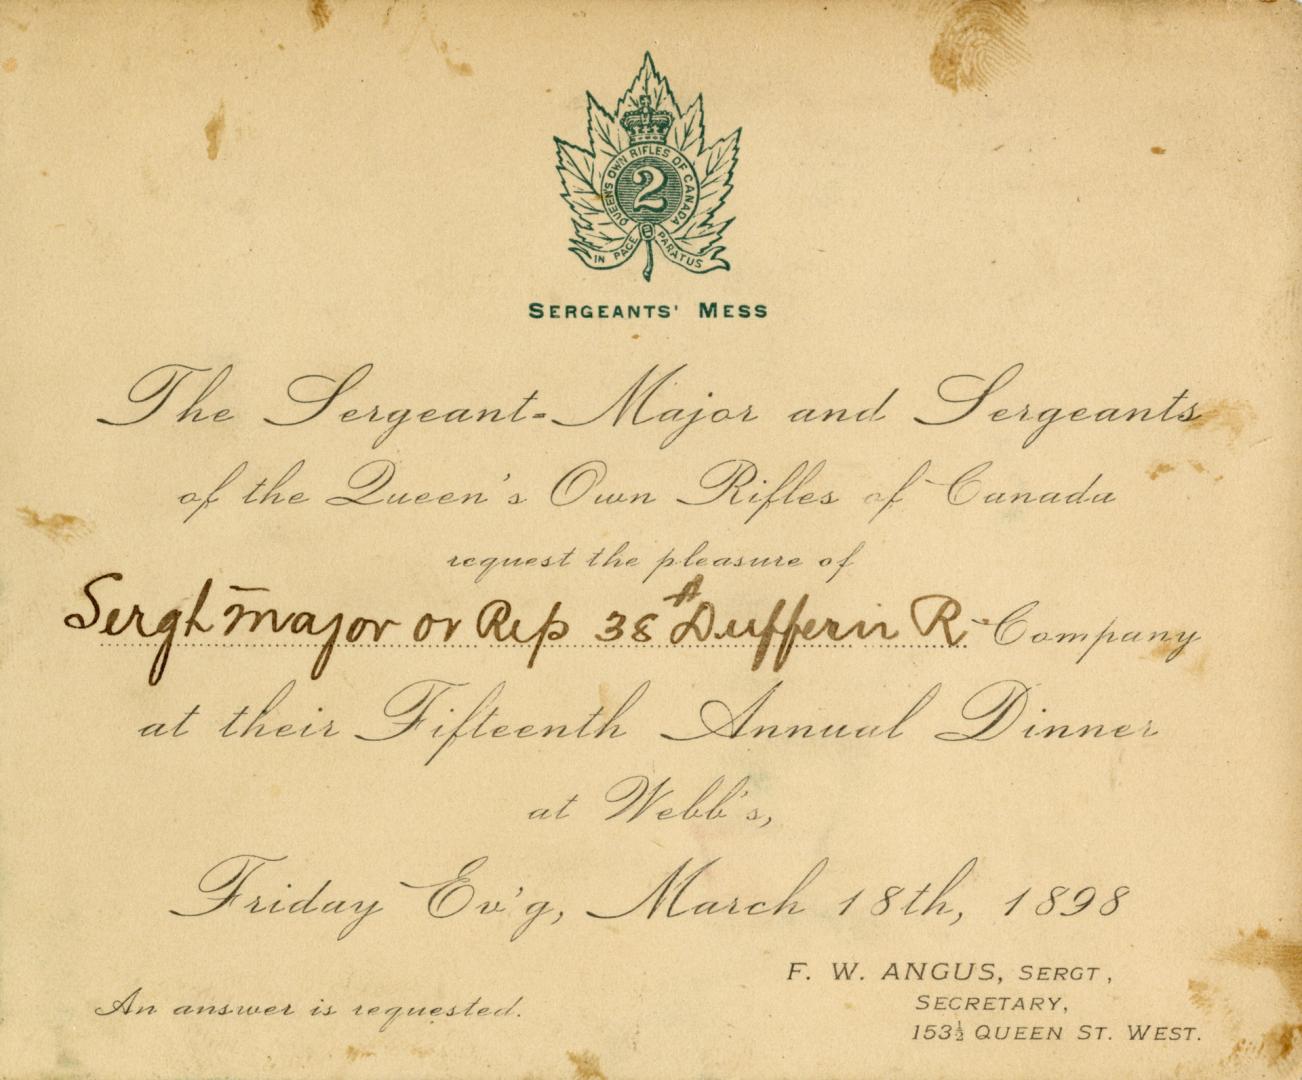 QUEEN'S OWN RIFLES OF CANADA
2
IN PACE PARATUS
SERGEANTS' MESS
The Sergeant-Major and Sergeants
of the Queen's Own Rifles of Canada
request the pleasure of
Sergt Major or Rep 38th Dufferin R Company
at their Fifteenth Annual Dinner
at Webb's,
Friday Ev'g, March 18th, 1898
F. W. ANGUS, SERGT,
An answer is requested.
SECRETARY,
153½ QUEEN ST. WEST.